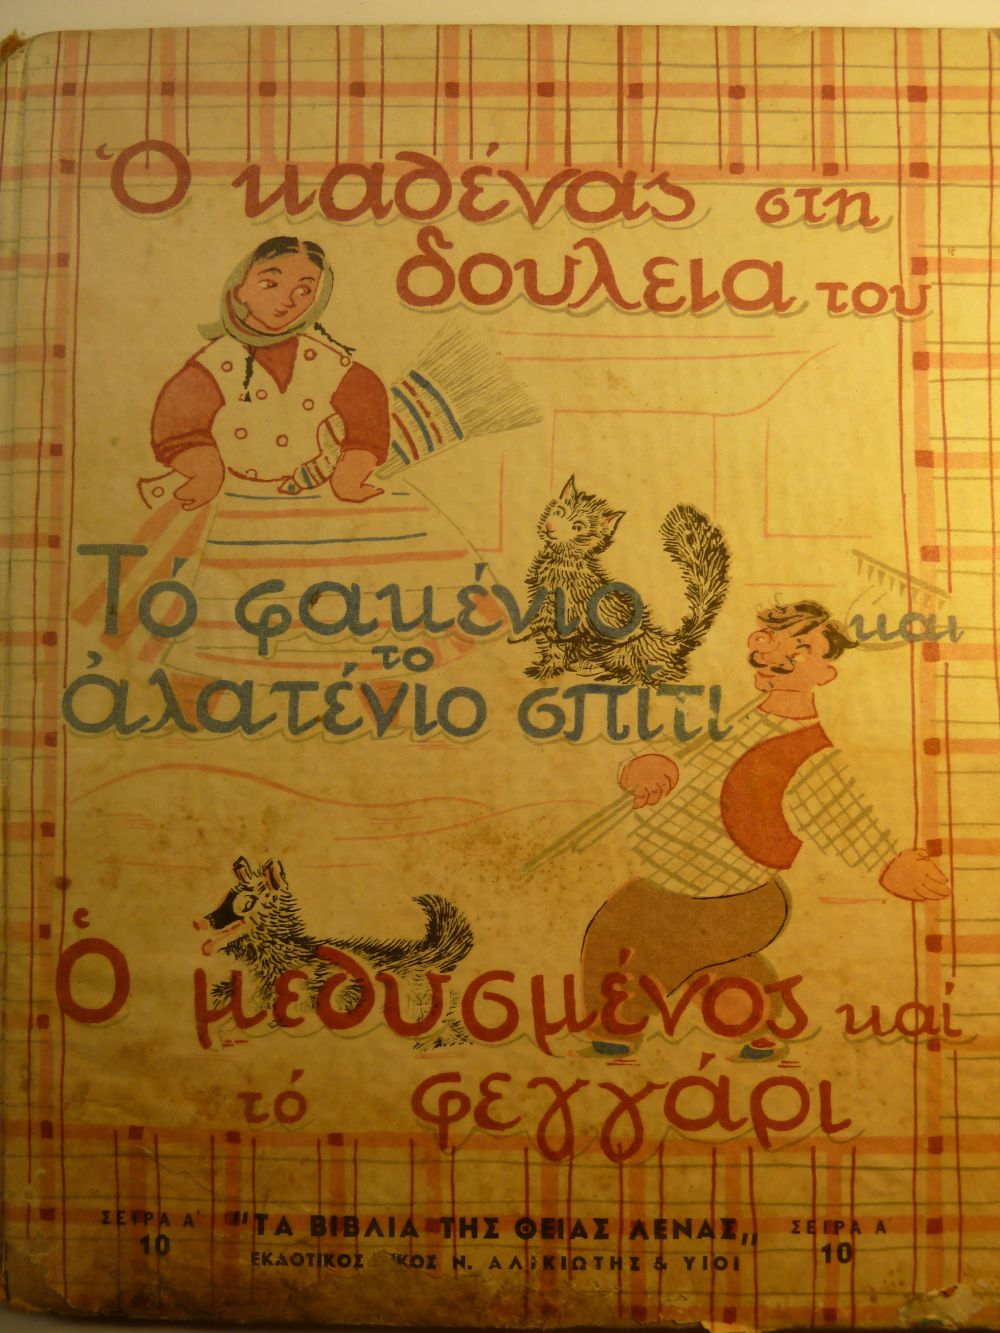 Ὁ καθένας στη
δουλειά του
Τό φακένιο και
το
ἁλατένιο σπίτι
Ὁ μεθυσμένος καί
τό φεγγάρι
ΣΕΙΡΑ Α΄ "ΤΑ ΒΙΒΛΙΑ ΤΗΣ ΘΕΙΑΣ ΛΕΝΑΣ" ΣΕΙΡΑ Α΄
10 ΕΚΔΟΤΙΚΟΣ Ν. ΑΛΙΚΙΩΤΗΣ & ΥΙΟΙ 10